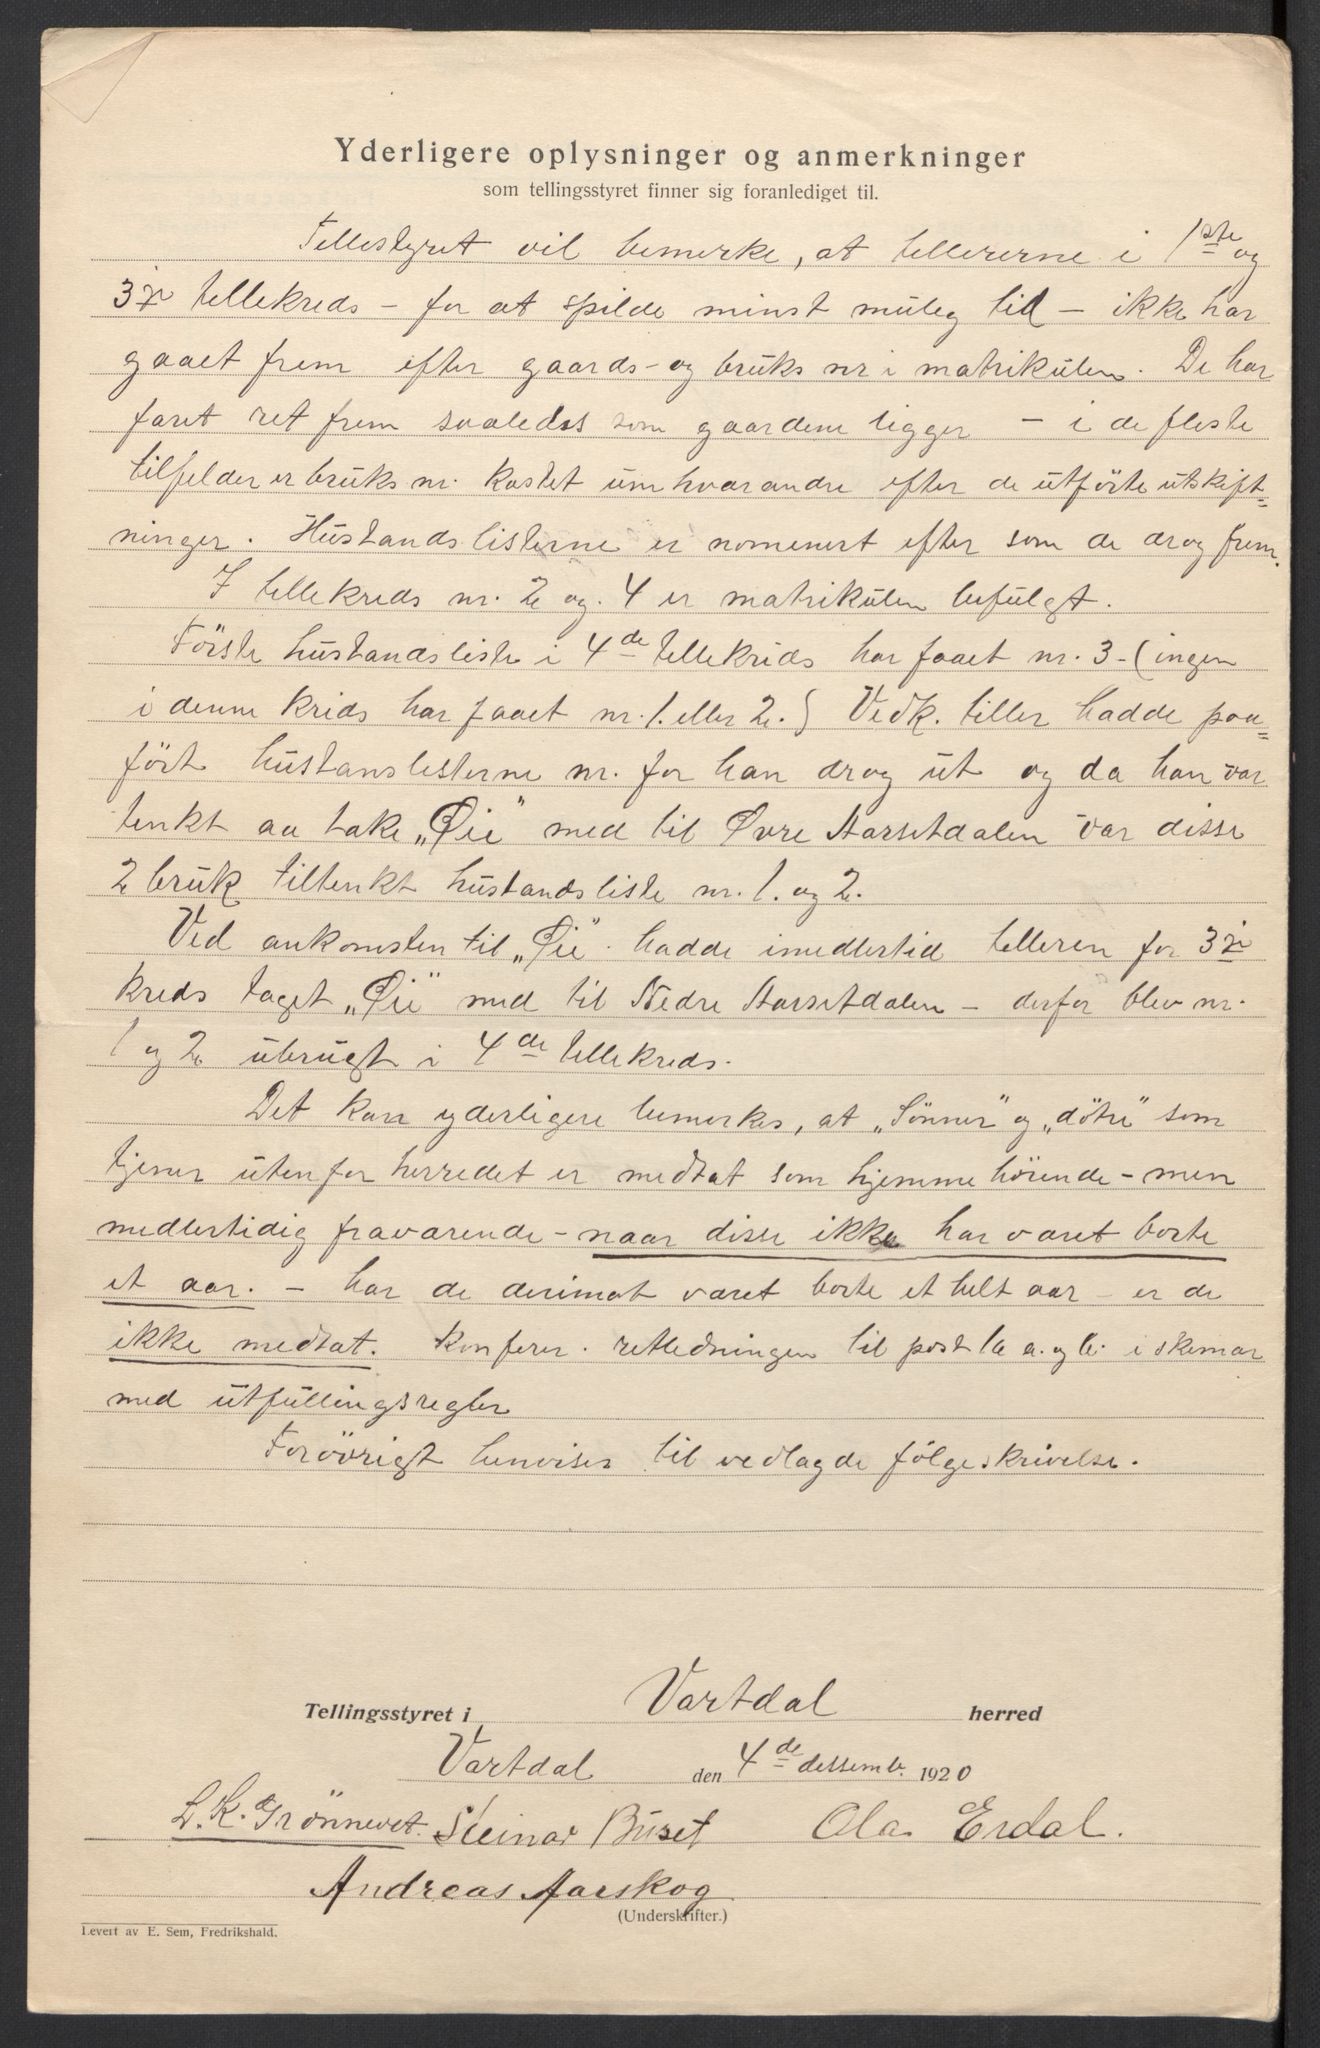 Yderligere oplysninger og anmerkninger
som tellingsstyret finner sig foranlediget til.
Tellestyret vil bemerke, at tellererne i 1ste og
3je tellekreds - for at spilde minst muleg tid - ikke har
gaaet frem efter gaards- og bruks nr i matrikulen. De har
faret ret frem saaledes som gaardene ligger - i de fleste
tilfelder er bruks nr. kastet um hvarandre efter de utförte utskift=
ninger. Hustandslisterne er nomenert efter som de drog frem.
I tellekreds nr. 2 og. 4 er matrikulen befulgt.
Förste hustandsliste i 4de tellekrids har faaet nr. 3 - (ingen
i denne krids har faaet nr. 1. eller 2.) Vedk. teller hadde paa=
fört hustanslisterne nr. för han drog ut og da han var
tenkt aa take „Øie" med til Øvre Aarsetdalen var disse
2 bruk tiltenkt hustandsliste nr. 1. og 2.
Ved ankomsten til „Øie" hadde imedlertid telleren for 3je
kreds taget „Øie" med til Nedre Aarsetdalen - derfor blev nr.
1 og 2 ubrugt i 4de tellekreds.
Det kan yderligere bemerkes, at „Sönner" og „dötre" som
tjener utenfor herredet er medtat som hjemmehörende - men
medlertidig fraværende - naar disse ikke har været borte
et aar. - har de derimot været borte et helt aar - er de
ikke medtat. Konferer. retledningen til post 1a a. og b. i skemar
med utfullingsregler
Forövrigt henvises til vedlagde fölgeskrivelse.
Tellingsstyret i Vartdal herred
Vartdal den 4de dessemb. 1920
L. K. Grönnevet. Steinar Buset Ola Erdal.
Andreas Aarskog
(Underskrifter.)
Levert av E. Sem, Fredrikshald.